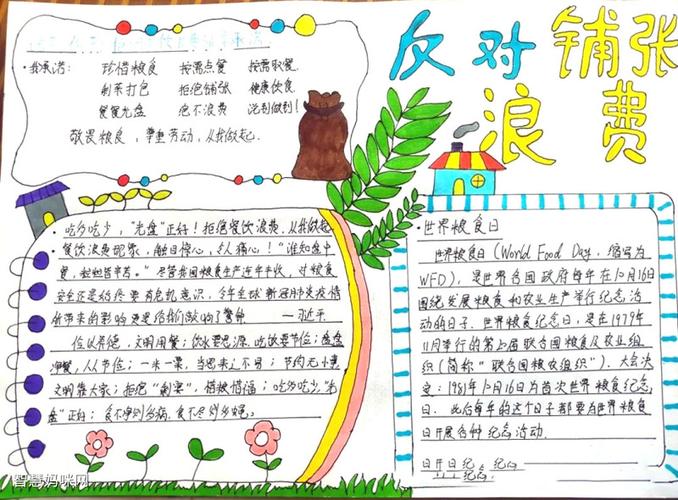 反对铺张
浪费
·我承诺: 珍惜粮食 按需点餐 按需取餐
剩菜打包 拒绝铺张 健康饮食
餐餐光盘 绝不浪费 说到做到!
敬畏粮食,尊重劳动,从我做起.
·吃多吃少,"光盘"正好!拒绝餐饮浪费,从我做起
·餐饮浪费现象,触目惊心,令人痛心!"谁知盘中
餐,粒粒皆辛苦。"尽管我国粮食生产连年丰收,对粮食
安全还是始终要有危机意识,今年全球新冠肺炎疫情
所带来的影响更是给我们敲响了警钟 —习近平
俭以养德,文明用餐;饮水要思源,吃饭要节俭;
净餐,人人节俭;一米一粟,当思来之不易;节约无小事,
文明靠大家;拒绝"剩宴",惜粮惜福;吃多吃少,"光
盘"正好;食不净则多病,食不尽则多
·世界粮食日
世界粮食日(World Food Day,缩写为
WFD),是世界各国政府每年在10月16日
围绕发展粮食和农业生产举行纪念活
动的日子.世界粮食纪念日,是在1979年
11月举行的第 届联合国粮食及农业组
织(简称"联合国粮农组织").大会决
定:1981年10月16日为首次世界粮食纪念
日.此后每年的这个日子都要为世界粮食
日开展各种纪念活动.
智慧妈咪网